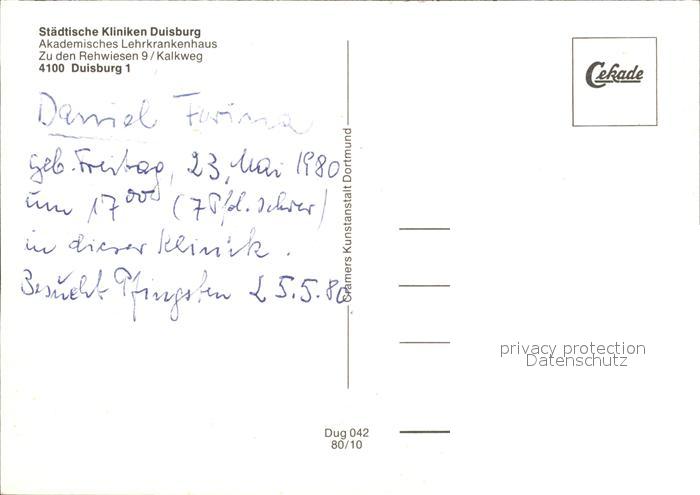 Städtische Kliniken Duisburg
Akademisches Lehrkrankenhaus
Zu den Rehwiesen 9 / Kalkweg
4100 Duisburg 1
Cekade
Daniel Furina
geb. Freitag, 23. Mai 1980
um 17⁰⁰ (7 Pfd. schwer)
in dieser Klinik.
Besucht Pfingsten 25.5.80
Cramers Kunstanstalt Dortmund
privacy protection
Datenschutz
Dug 042
80/10